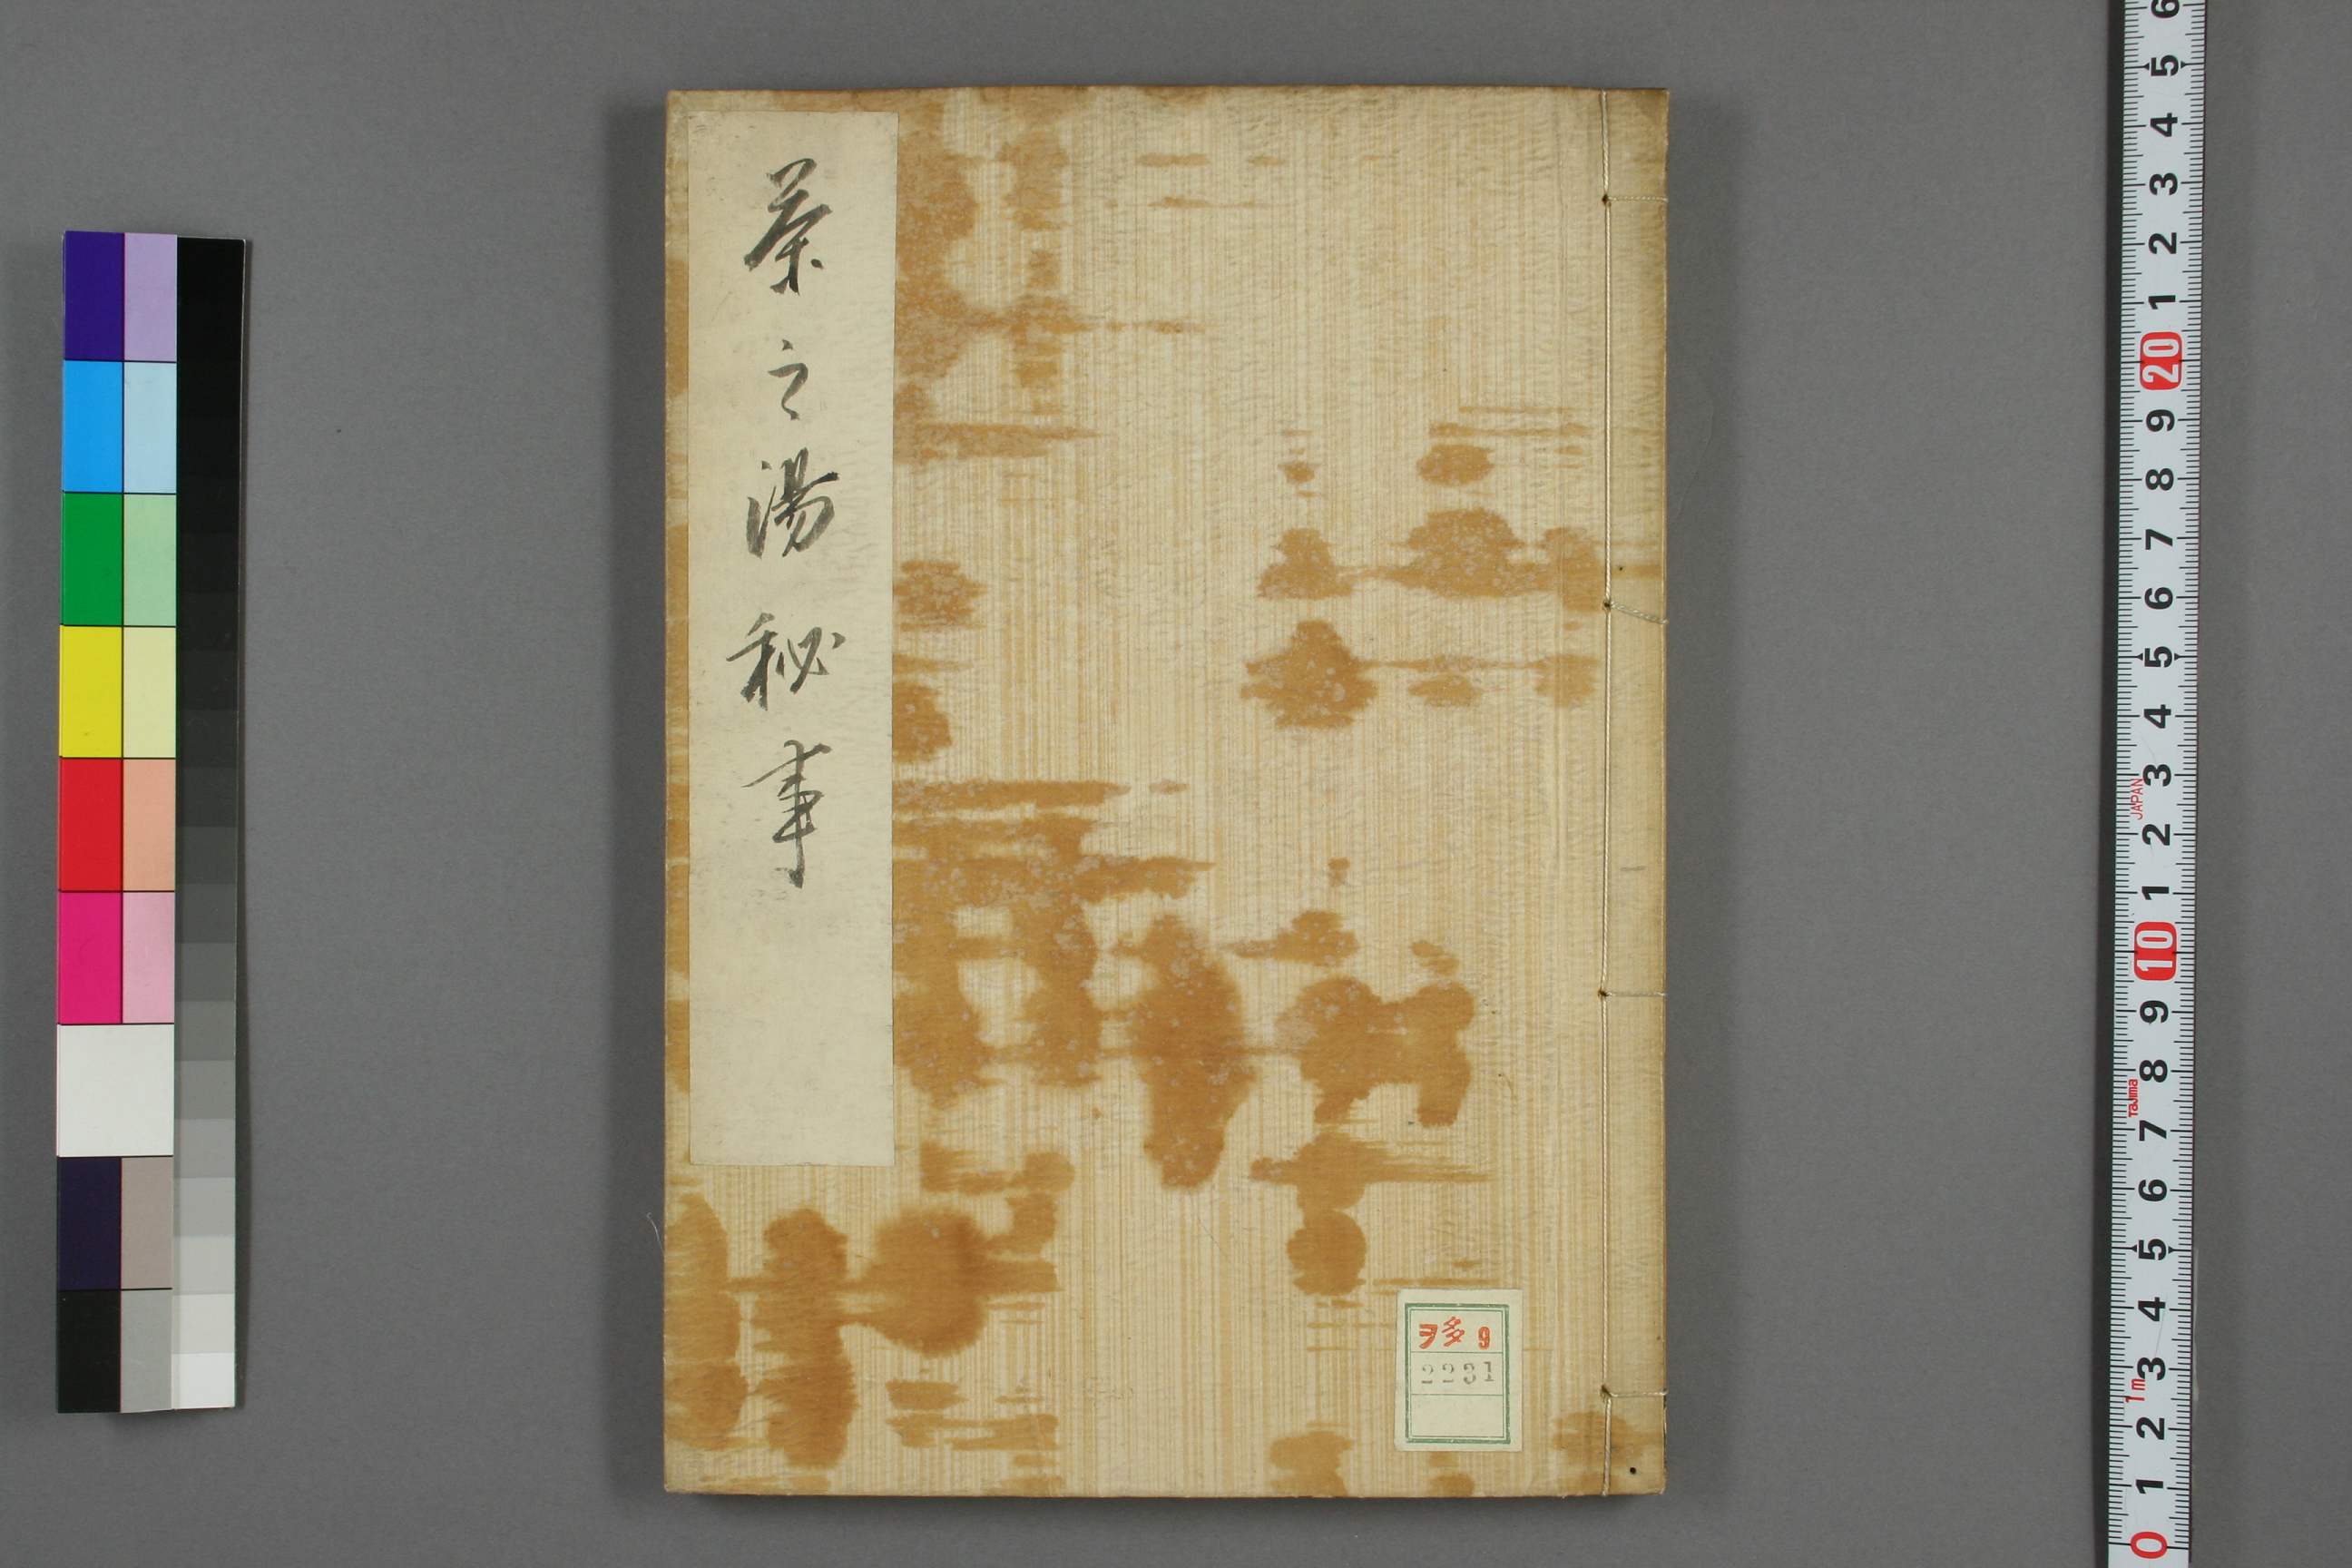 茶之湯秘事
ヲ多 9
2231
6
5
4
3
2
1
20
9
8
7
6
5
4
3
JAPAN
2
1
10
9
8
Tajima
7
6
5
4
3
1m
2
1
0